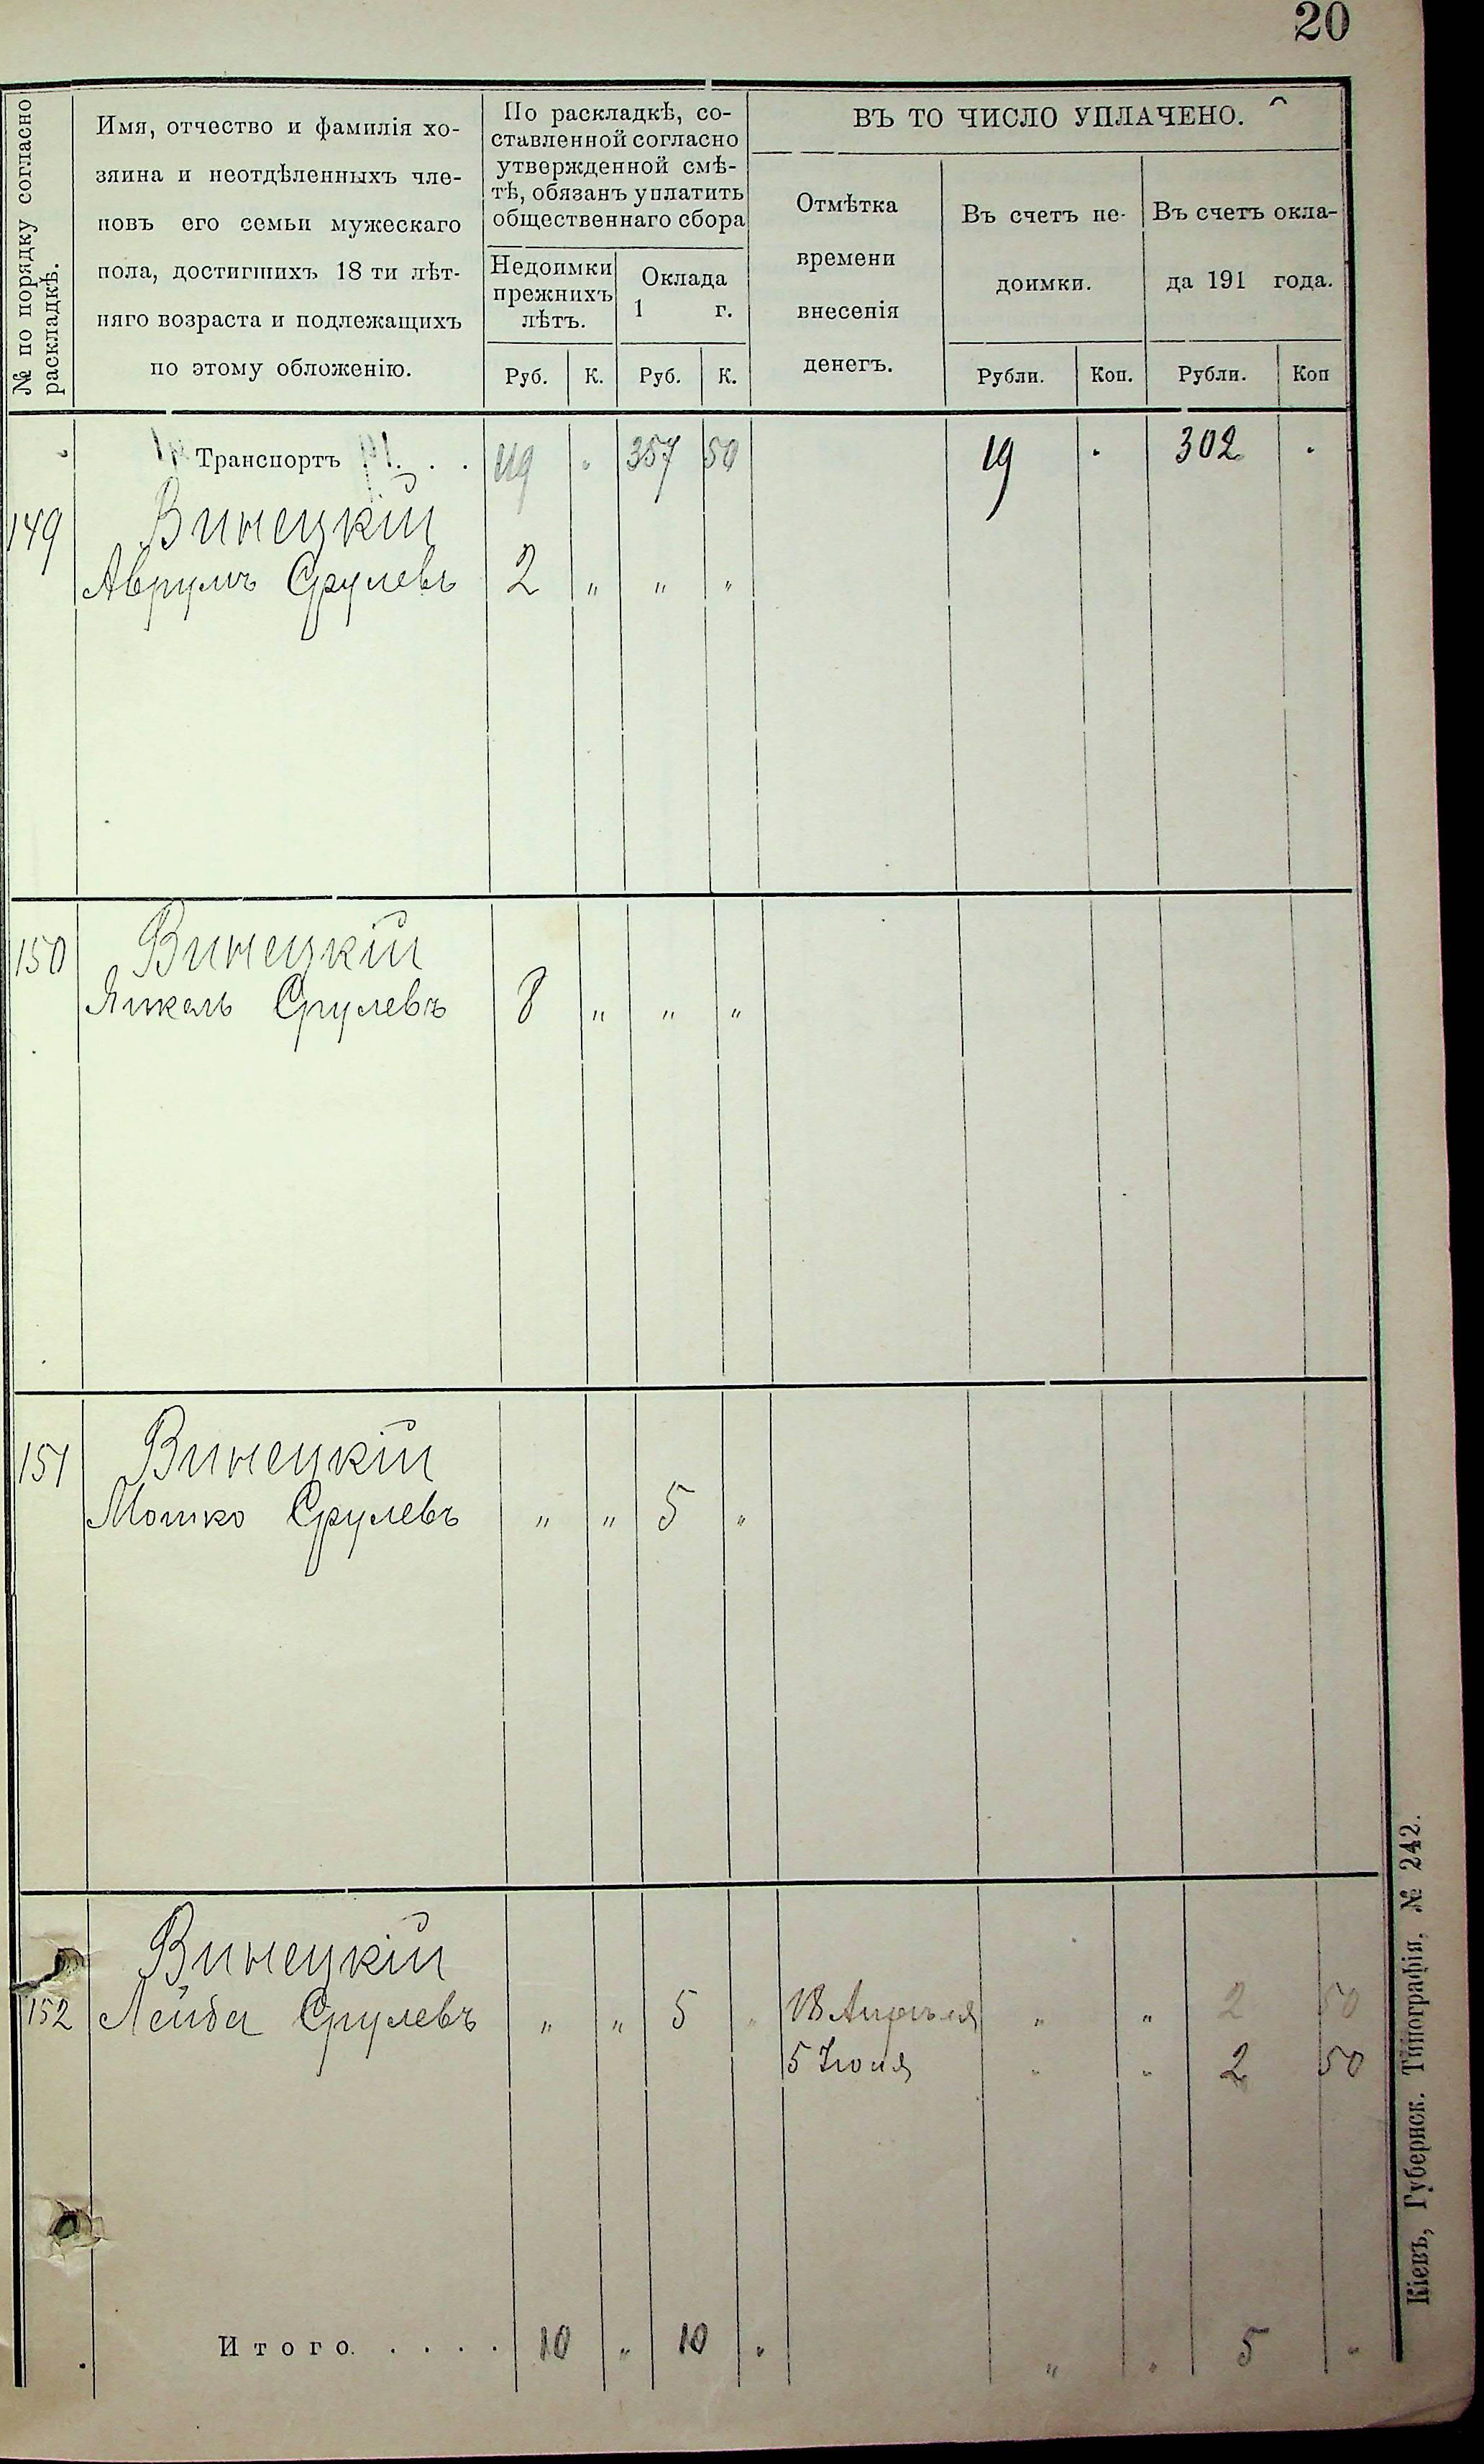 20
№ по порядку согласно
раскладкѣ.
Имя, отчество и фамилія хо-
зяина и неотдѣленныхъ чле-
новъ его семьи мужескаго
пола, достигшихъ 18 ти лѣт-
няго возраста и подлежащихъ
по этому обложенію.
По раскладкѣ, со-
ставленной согласно
утвержденной смѣ-
тѣ, обязанъ уплатить
общественнаго сбора
Недоимки
прежнихъ
лѣтъ.
Оклада
1 г.
Руб. К. Руб. К.
ВЪ ТО ЧИСЛО УПЛАЧЕНО.
Отмѣтка
времени
внесенія
денегъ.
Въ счетъ не-
доимки.
Въ счетъ окла-
да 191 года.
Рубли. Коп. Рубли. Коп
Транспортъ . . . 119 „ 357 50 19 . 302 .
149 Винецкій
Аврумъ Срулевъ 2 „ „ „
150 Винецкій
Янкель Срулевъ 8 „ „ „
151 Винецкій
Мошко Срулевъ „ „ 5 „
Винецкій
152 Лейба Срулевъ „ „ 5 „ 18 Апрѣля „ „ 2 50
5 Іюля „ „ 2 50
Итого. . . . . 10 „ 10 „ „ „ 5 „
Кіевъ, Губернск. Типографія, № 242.